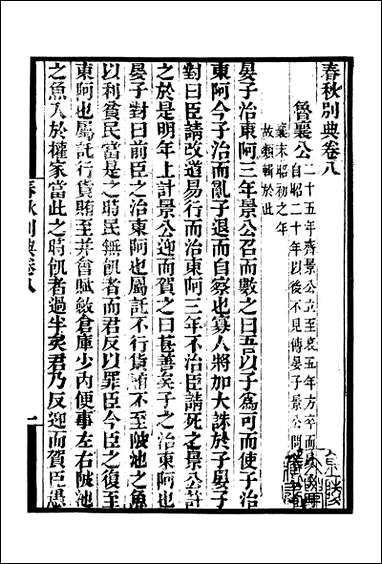 春秋別典卷八
魯襄公
二十五年齊景公立至哀五年方卒而
自昭二十年以後不見傳晏子景公問
襄末昭初之年
故類輯於此
晏子治東阿三年景公召而數之曰吾以子為可而使子治
東阿今子治而亂子退而自察也寡人將加大誅於子晏子
對曰臣請改道易行而治東阿三年不治臣請死之景公許
之於是明年上計景公迎而賀之曰甚善矣子之治東阿也
晏子對曰前臣之治東阿也屬託不行貨賂不至陂池之魚
以利貧民當是之時民無飢者而君反以罪臣今臣之復至
東阿也屬託行貨賂至并會賦斂倉庫少內便事左右陂池
之魚入於權家當此之時飢者過半矣君乃反迎而賀臣愚
春秋別典卷八
一